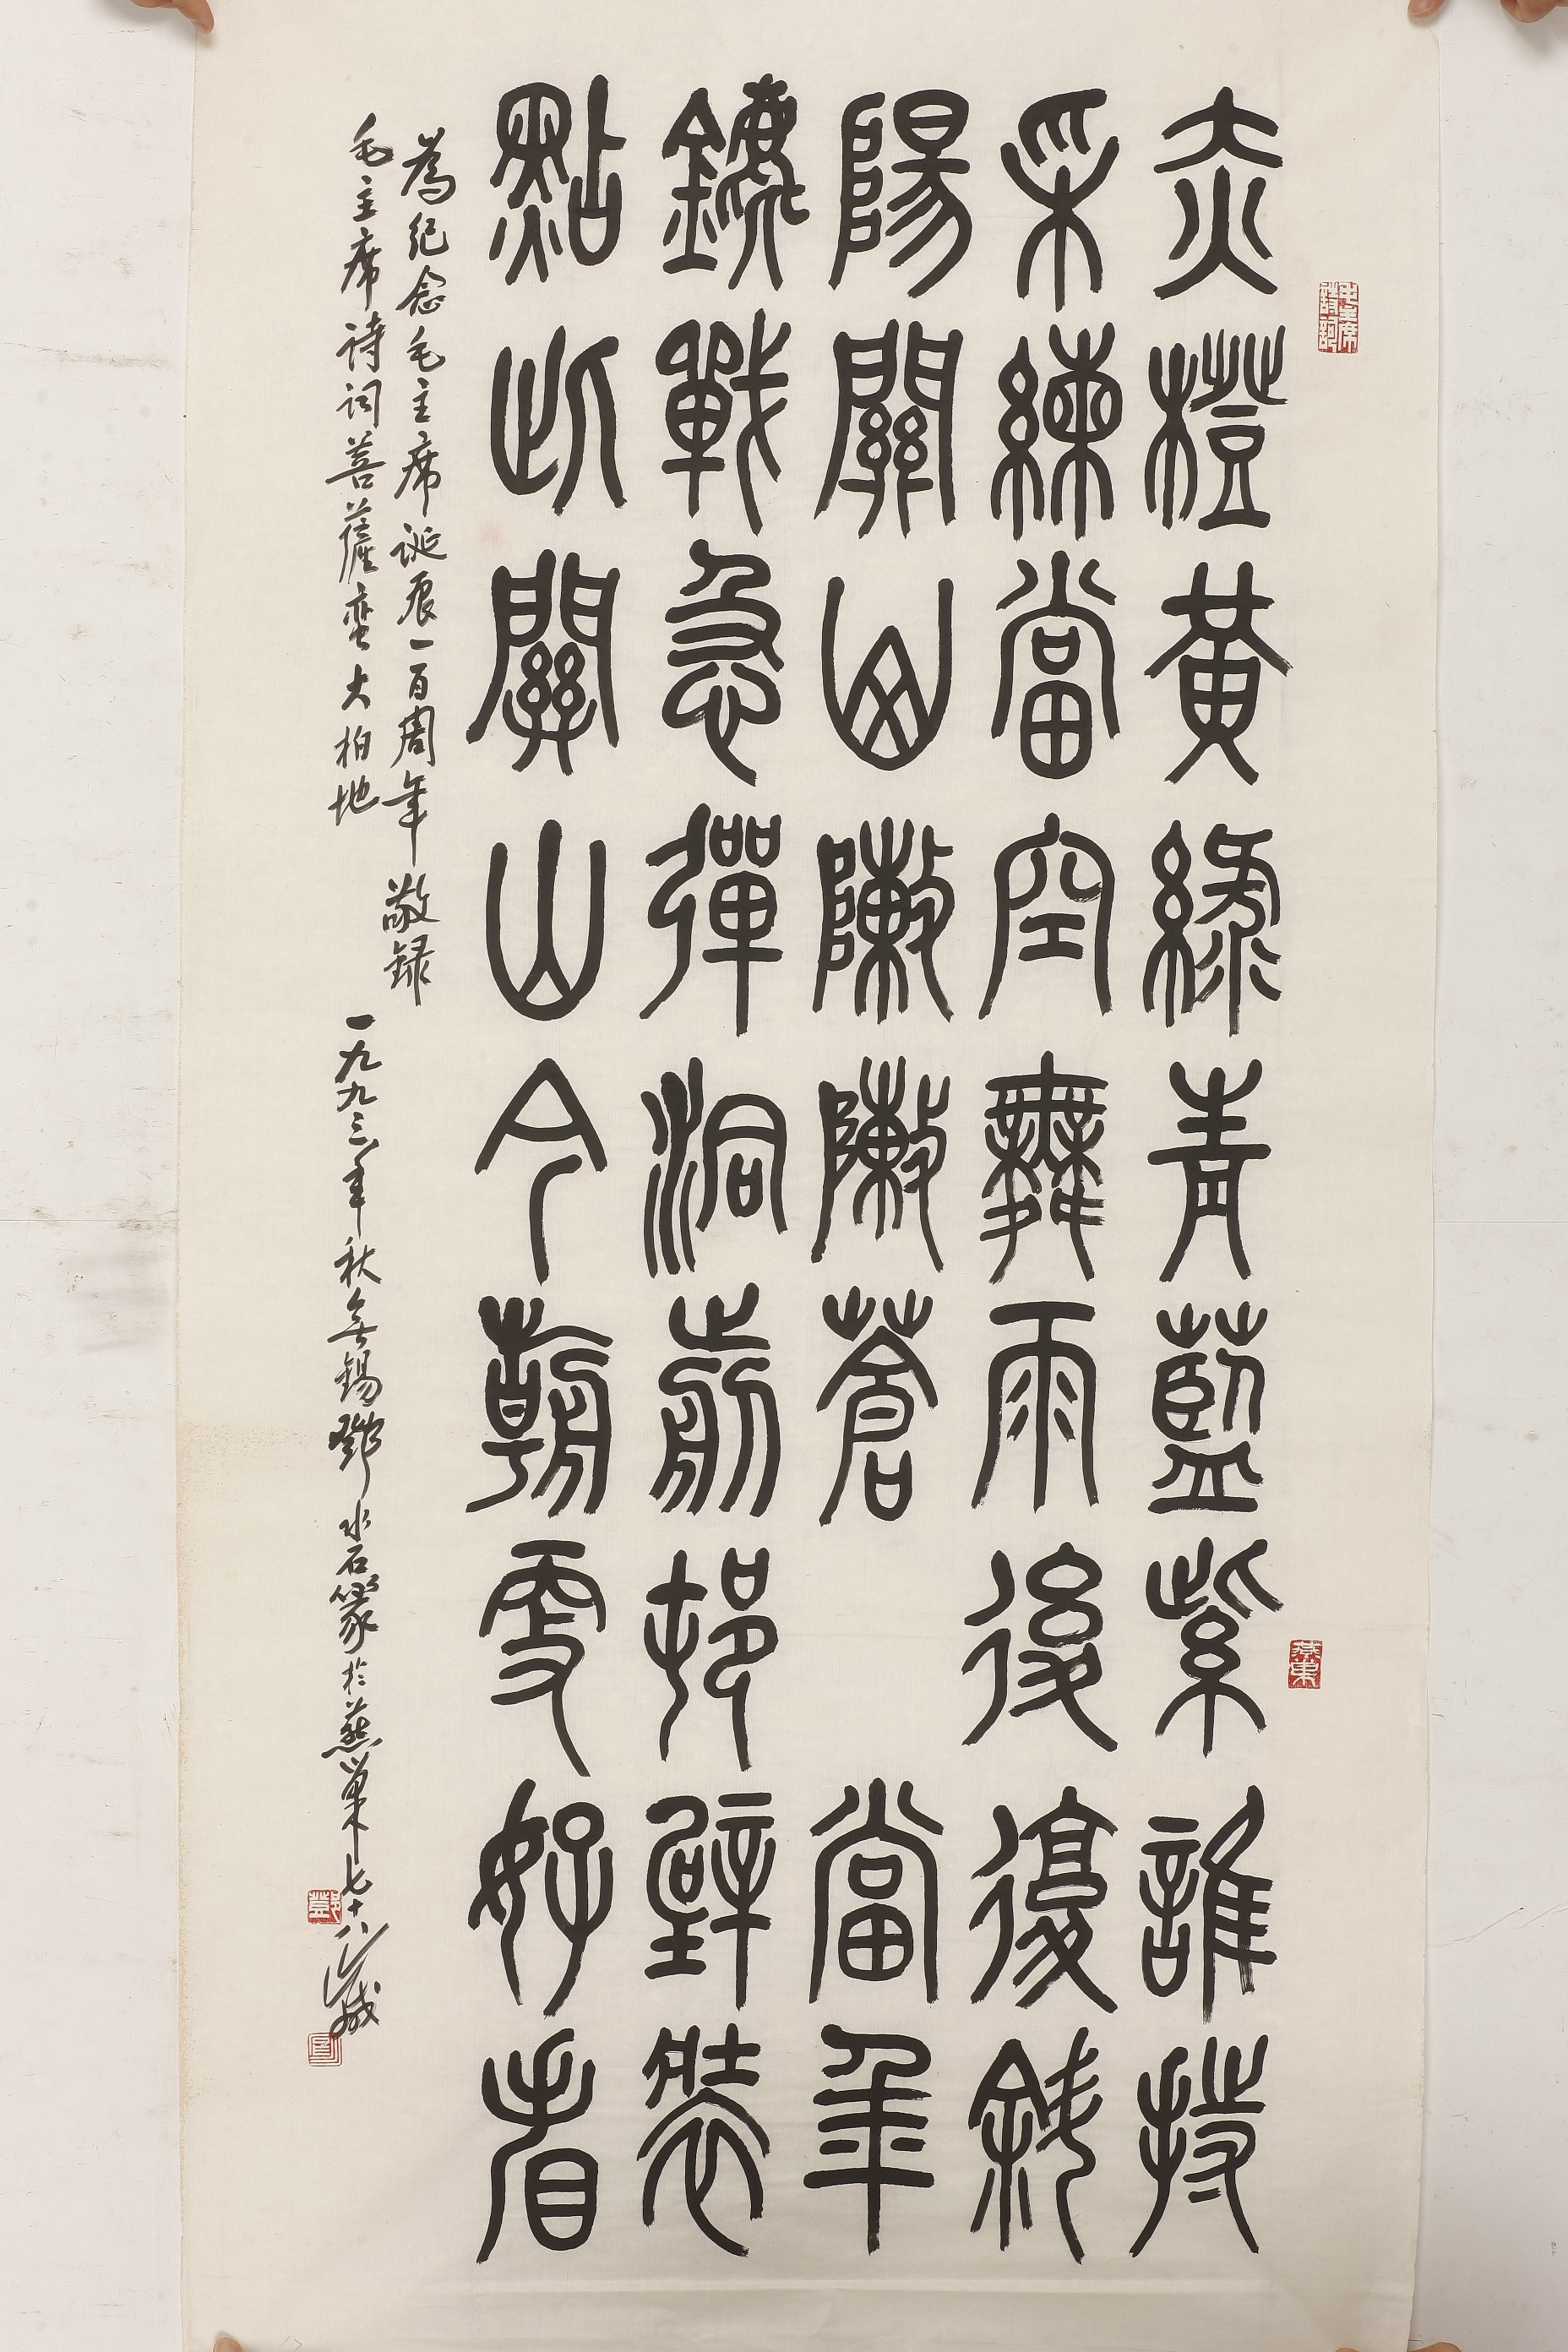 毛主席詩詞
赤橙黃綠青藍紫誰持
采練當空舞雨後復斜
陽關山陣陣蒼 當年
鏖戰急彈洞前邨壁裝
點此關山今朝更好看
為纪念毛主席诞辰一百周年 敬録
毛主席诗词菩薩蛮大柏地 一九九三年秋無錫鄧水石篆於燕巢七十八歲
燕巢
鄧